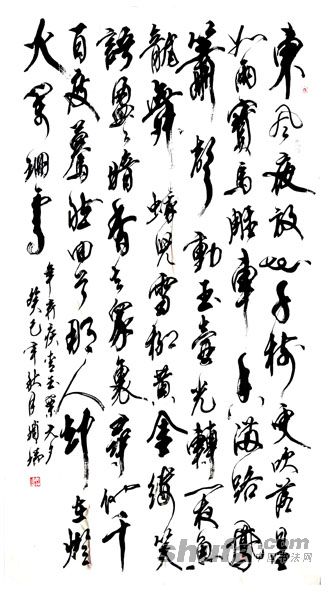 東風夜放花千樹更吹落星
如雨寶馬雕車香滿路鳳
簫聲動玉壺光轉一夜魚
龍舞蛾兒雪柳黃金縷笑
語盈々暗香去眾裏尋他千
百度驀然回首那人卻在燈
火闌珊處
辛棄疾青玉案元夕
癸巳年秋月
中国书法网